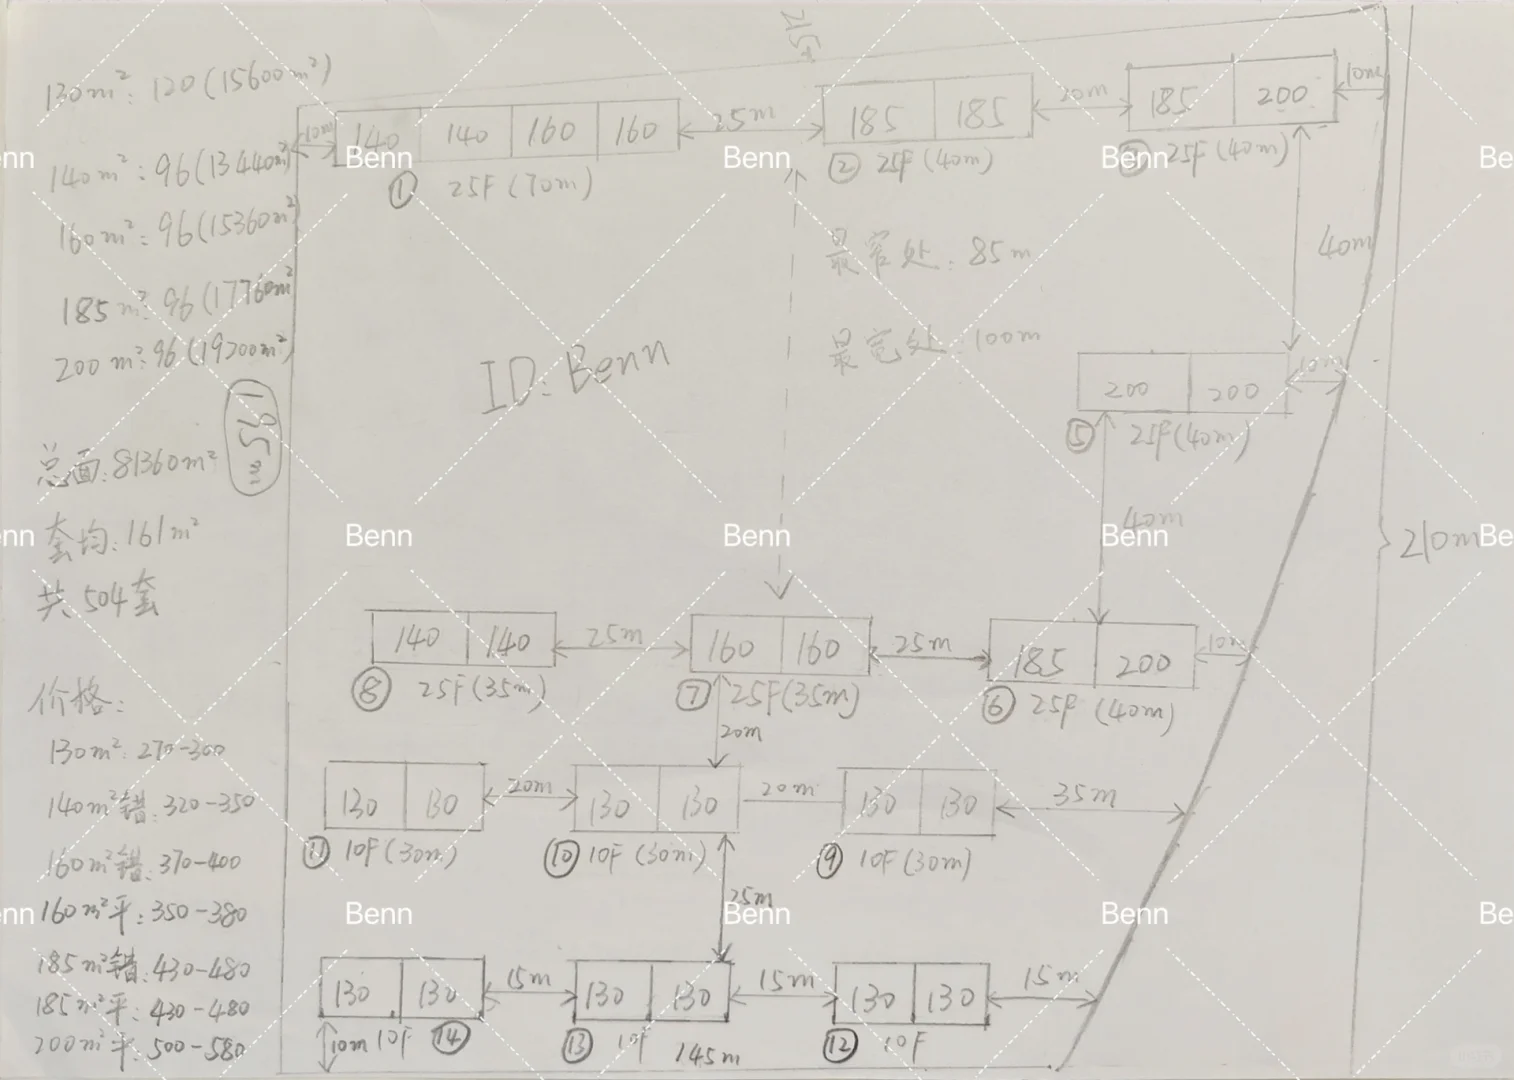 215
130m²: 120(15600m²)
140m²: 96(13440m²)
160m²: 96(15360m²)
185m²: 96(17760m²)
200m²: 96(19200m²)
195m
总面:81360m²
套均:161m²
共504套
价格:
130m²: 270-300
140m²错:320-350
160m²错:370-400
160m²平:350-380
185m²错:430-480
185m²平:430-480
200m²平:500-580
10m 140 140 160 160 25m 185 185 20m 185 200 10m
① 25F(70m) ② 25F(40m) 25F(40m)
最窄处:85m
40m
最宽处:100m
ID:Benn
200 200 10m
⑤ 25F(40m)
40m
210m
140 140 25m 160 160 25m 185 200 10m
⑧ 25F(35m) ⑦ 25F(35m) ⑥ 25F(40m)
20m
130 130 20m 130 130 20m 130 130 35m
⑪ 10F(30m) ⑩ 10F(30m) ⑨ 10F(30m)
25m
130 130 15m 130 130 15m 130 130 15m
10m 10F ⑭ ⑬ 10F 145m ⑫ 10F
Benn Benn Benn
Benn Benn Benn Benn
Benn Benn Benn